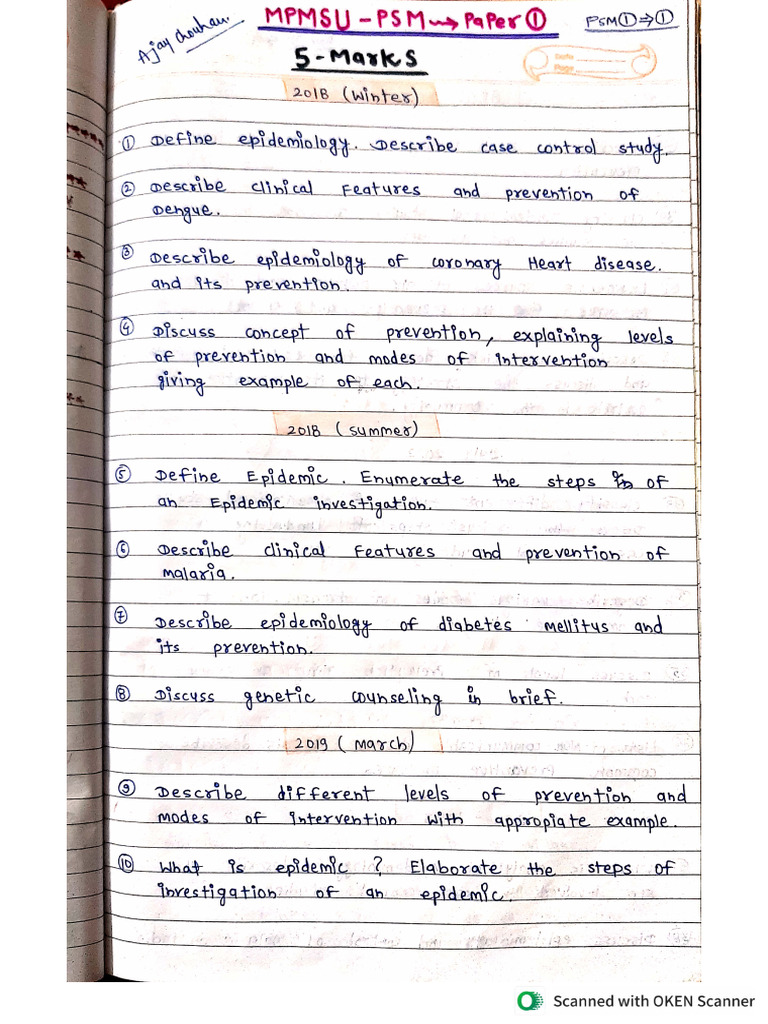 Ajay Chouhan
MPMSU - PSM → Paper ①
PSM① ⇒ ①
5 - Marks
2018 (Winter)
① Define epidemiology. Describe case control study.
② Describe clinical Features and prevention of
Dengue.
③ Describe epidemiology of coronary Heart disease.
and its prevention.
④ Discuss concept of prevention, explaining levels
of prevention and modes of intervention
giving example of each.
2018 (summer)
⑤ Define Epidemic. Enumerate the steps of
an Epidemic investigation.
⑥ Describe clinical Features and prevention of
malaria.
⑦ Describe epidemiology of diabetes mellitus and
its prevention.
⑧ Discuss genetic counseling in brief.
2019 (March)
⑨ Describe different levels of prevention and
modes of intervention with appropiate example.
⑩ What is epidemic ? Elaborate the steps of
investigation of an epidemic.
Scanned with OKEN Scanner